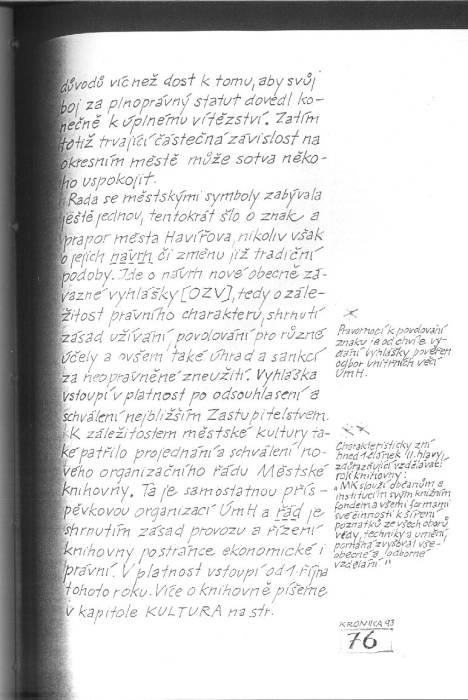 důvodů víc než dost k tomu, aby svůj
boj za plnoprávný statut dovedl ko-
nečně k úplnému vítězství. Zatím
totiž trvající částečná závislost na
okresním městě může sotva něko-
ho uspokojit.
Rada se městskými symboly zabývala
ještě jednou, tentokrát šlo o znak a
prapor města Havířova, nikoliv však
o jejich návrh či změnu již tradiční
podoby. Jde o návrh nové obecně zá-
vazné vyhlášky [OZV], tedy o zále-
žitost právního charakteru, shrnutí
zásad užívání, povolování pro různé
účely a ovšem také úhrad a sankcí
za neoprávněné zneužití. Vyhláška
vstoupí v platnost po odsouhlasení a
schválení nejbližším Zastupitelstvem.
K záležitostem městské kultury ta-
ké patřilo projednání a schválení no-
vého organizačního řádu Městské
knihovny. Ta je samostatnou přís-
pěvkovou organizací ÚmH a řád je
shrnutím zásad provozu a řízení
knihovny po stránce ekonomické i
právní. V platnost vstoupí od 1. října
tohoto roku. Více o knihovně píšeme
v kapitole KULTURA na str.
*
Pravomocí k povolování
znaku je od chvíle vy-
dání vyhlášky pověřen
odbor vnitřních věcí
ÚmH.
**
Charakteristicky zní
hned 1. článek II. hlavy,
zdůrazňující vzdělávací
roli knihovny:
"MK slouží občanům a
institucím svým knižním
fondem a všemi formami
své činnosti k šíření
poznatků ze všech oborů
vědy, techniky a umění,
pomáhá zvyšovat vše-
obecné a odborné
vzdělání"
KRONIKA 93
76